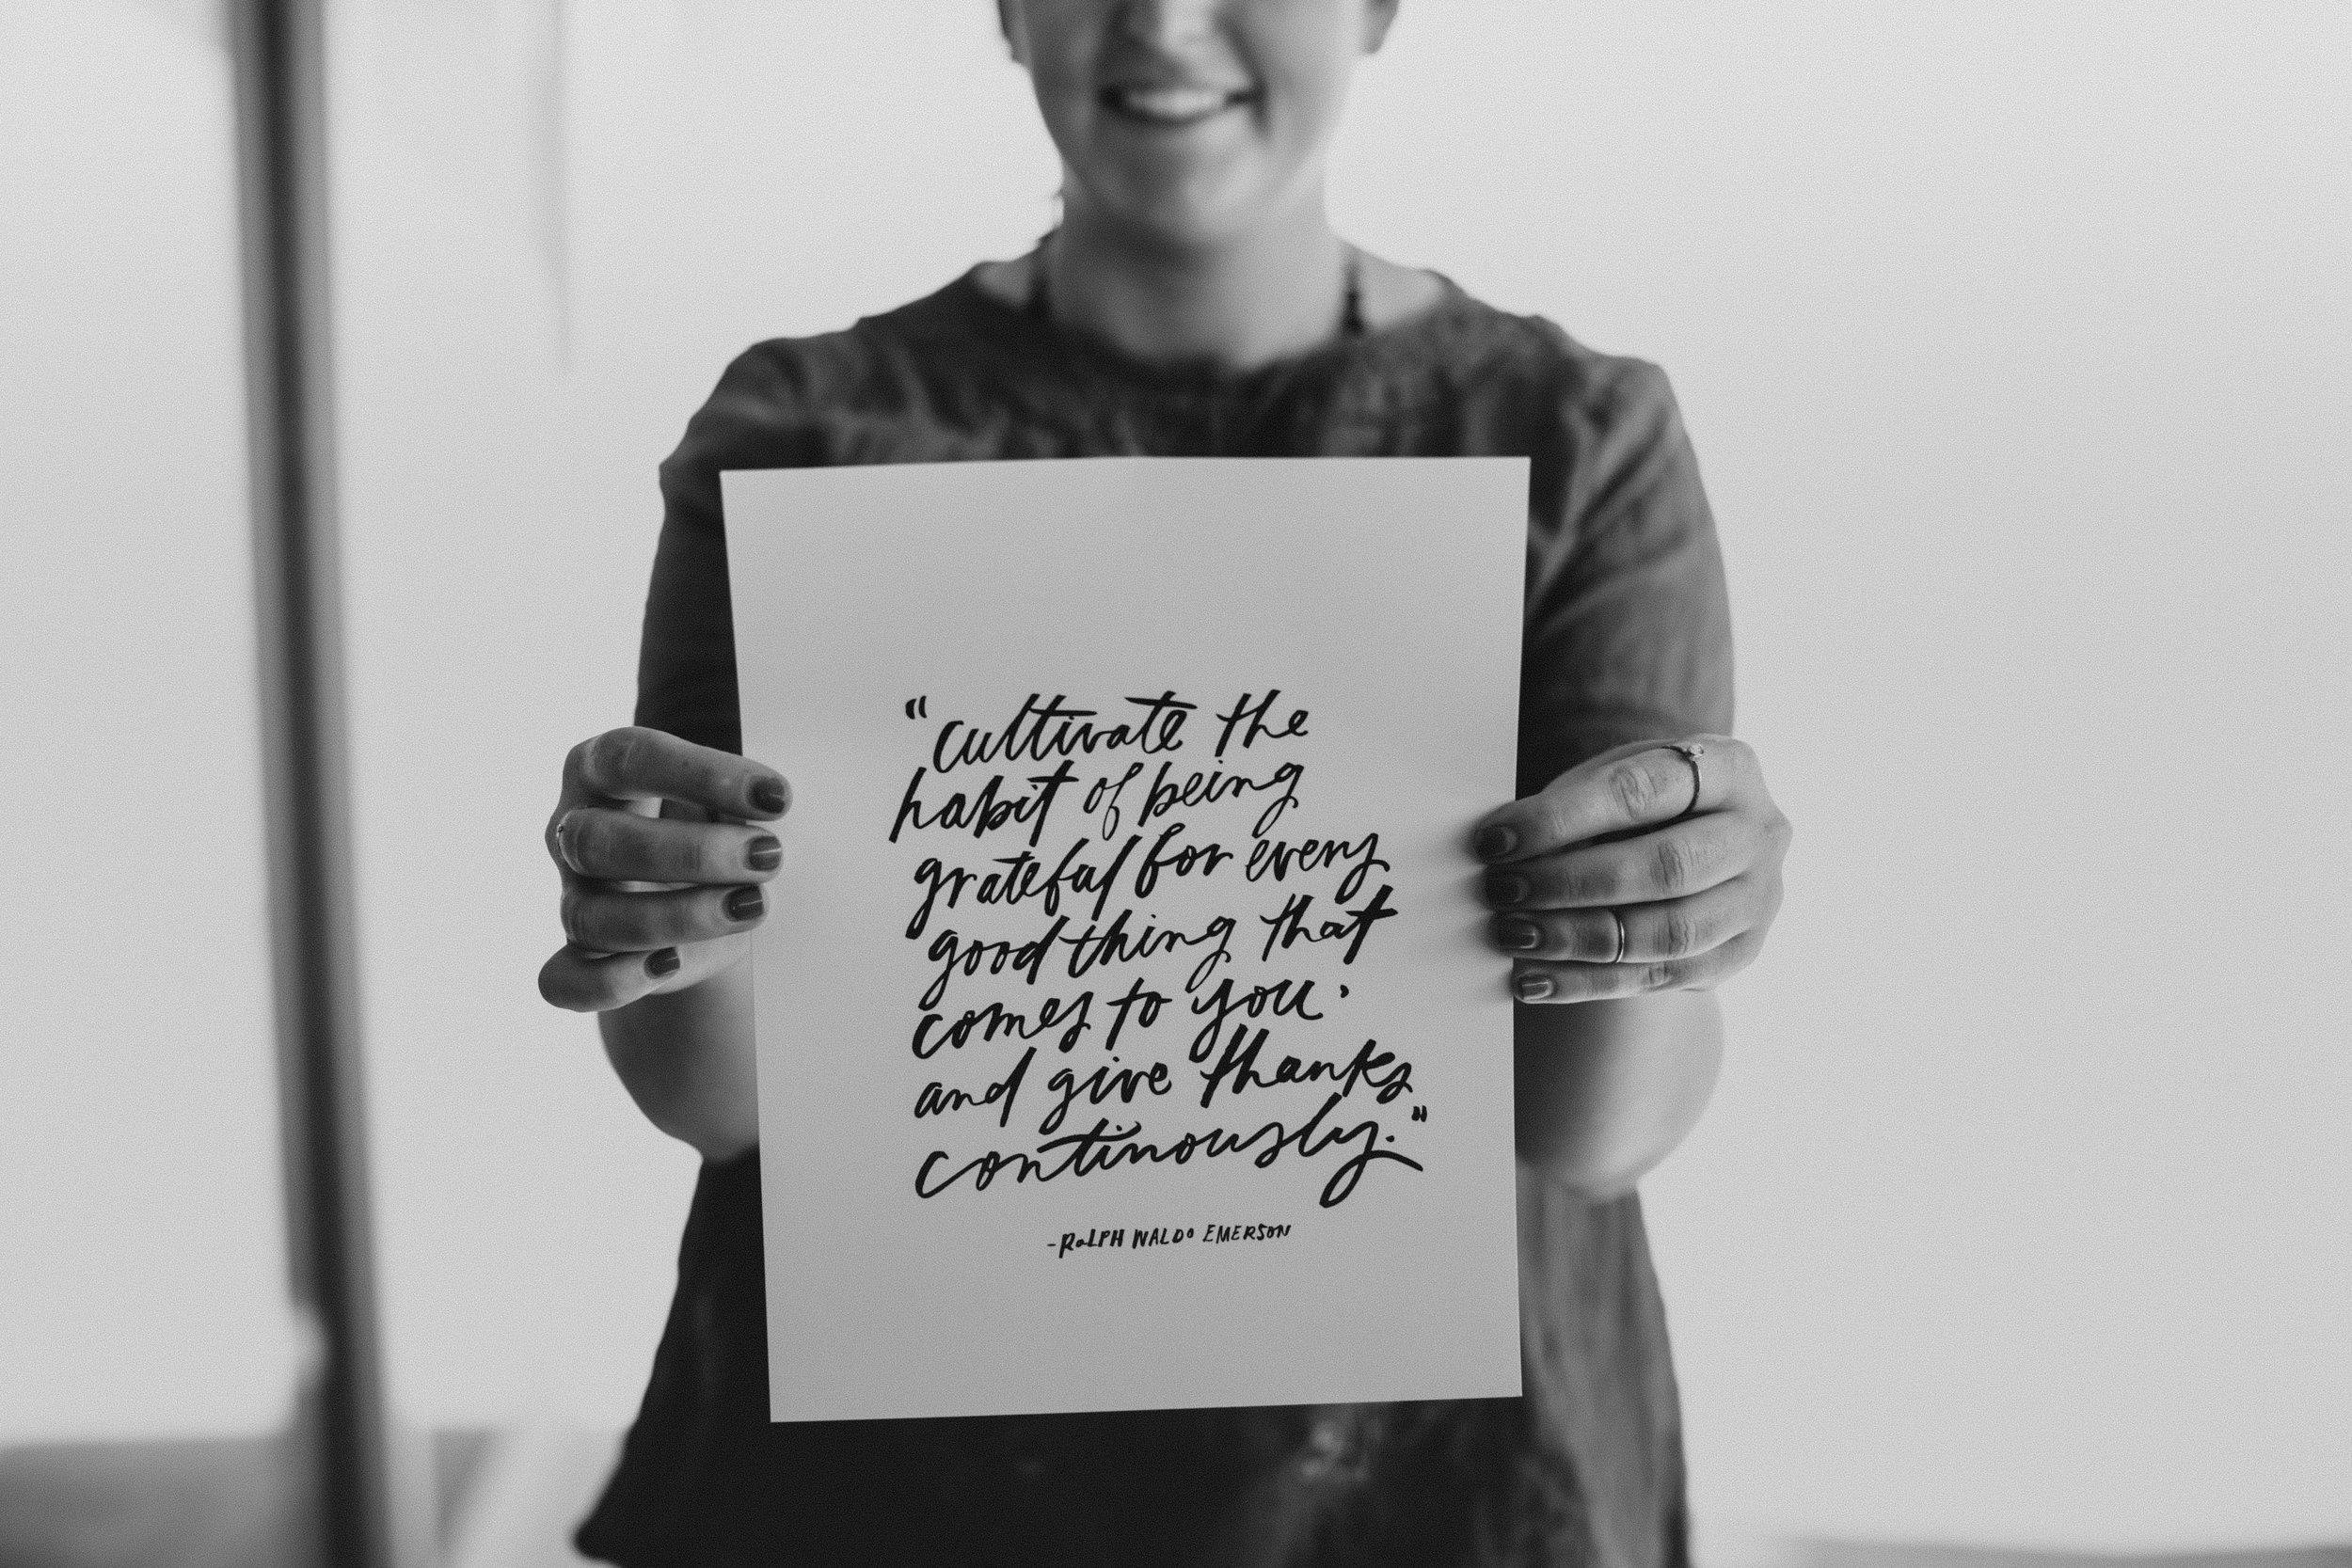 "cultivate the
habit of being
grateful for every
good thing that
comes to you.
and give thanks
continously."
-RALPH WALDO EMERSON